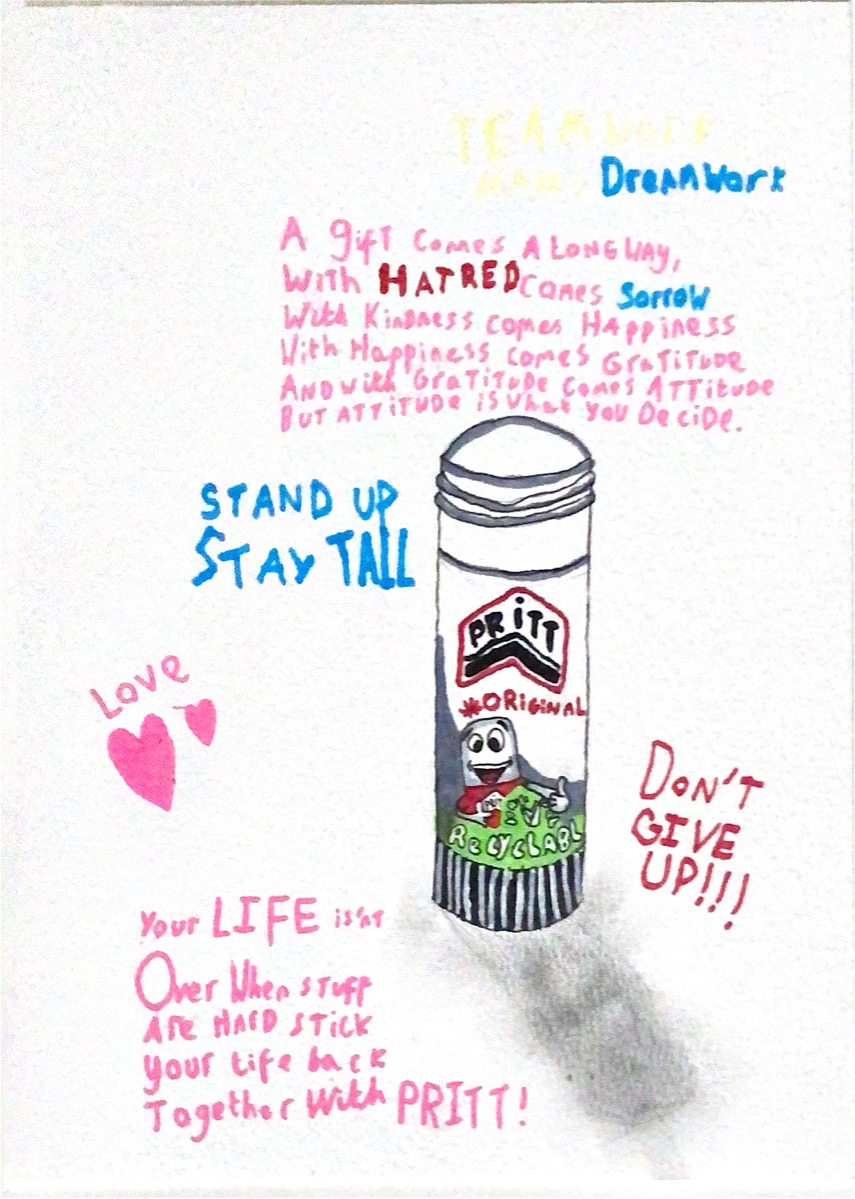 TEAMWork
MAKES DreAMWork
A gift comes A LONG WAY,
With HATRED comes Sorrow
With Kindness comes HAppiness
With Happiness comes GraTiTuDe
AND with GraTiTuDe comes ATTitude
BUT ATTiTUDe is what you DeciDe.
STAND UP
STAY TALL
Love
PRiTT
*ORiGiNAL
RecYCLABL
DoN'T
GIVE
UP!!!
Your LIFE isn't
Over When STUFF
Are HArD STicK
Your Life back
Together With PRITT!